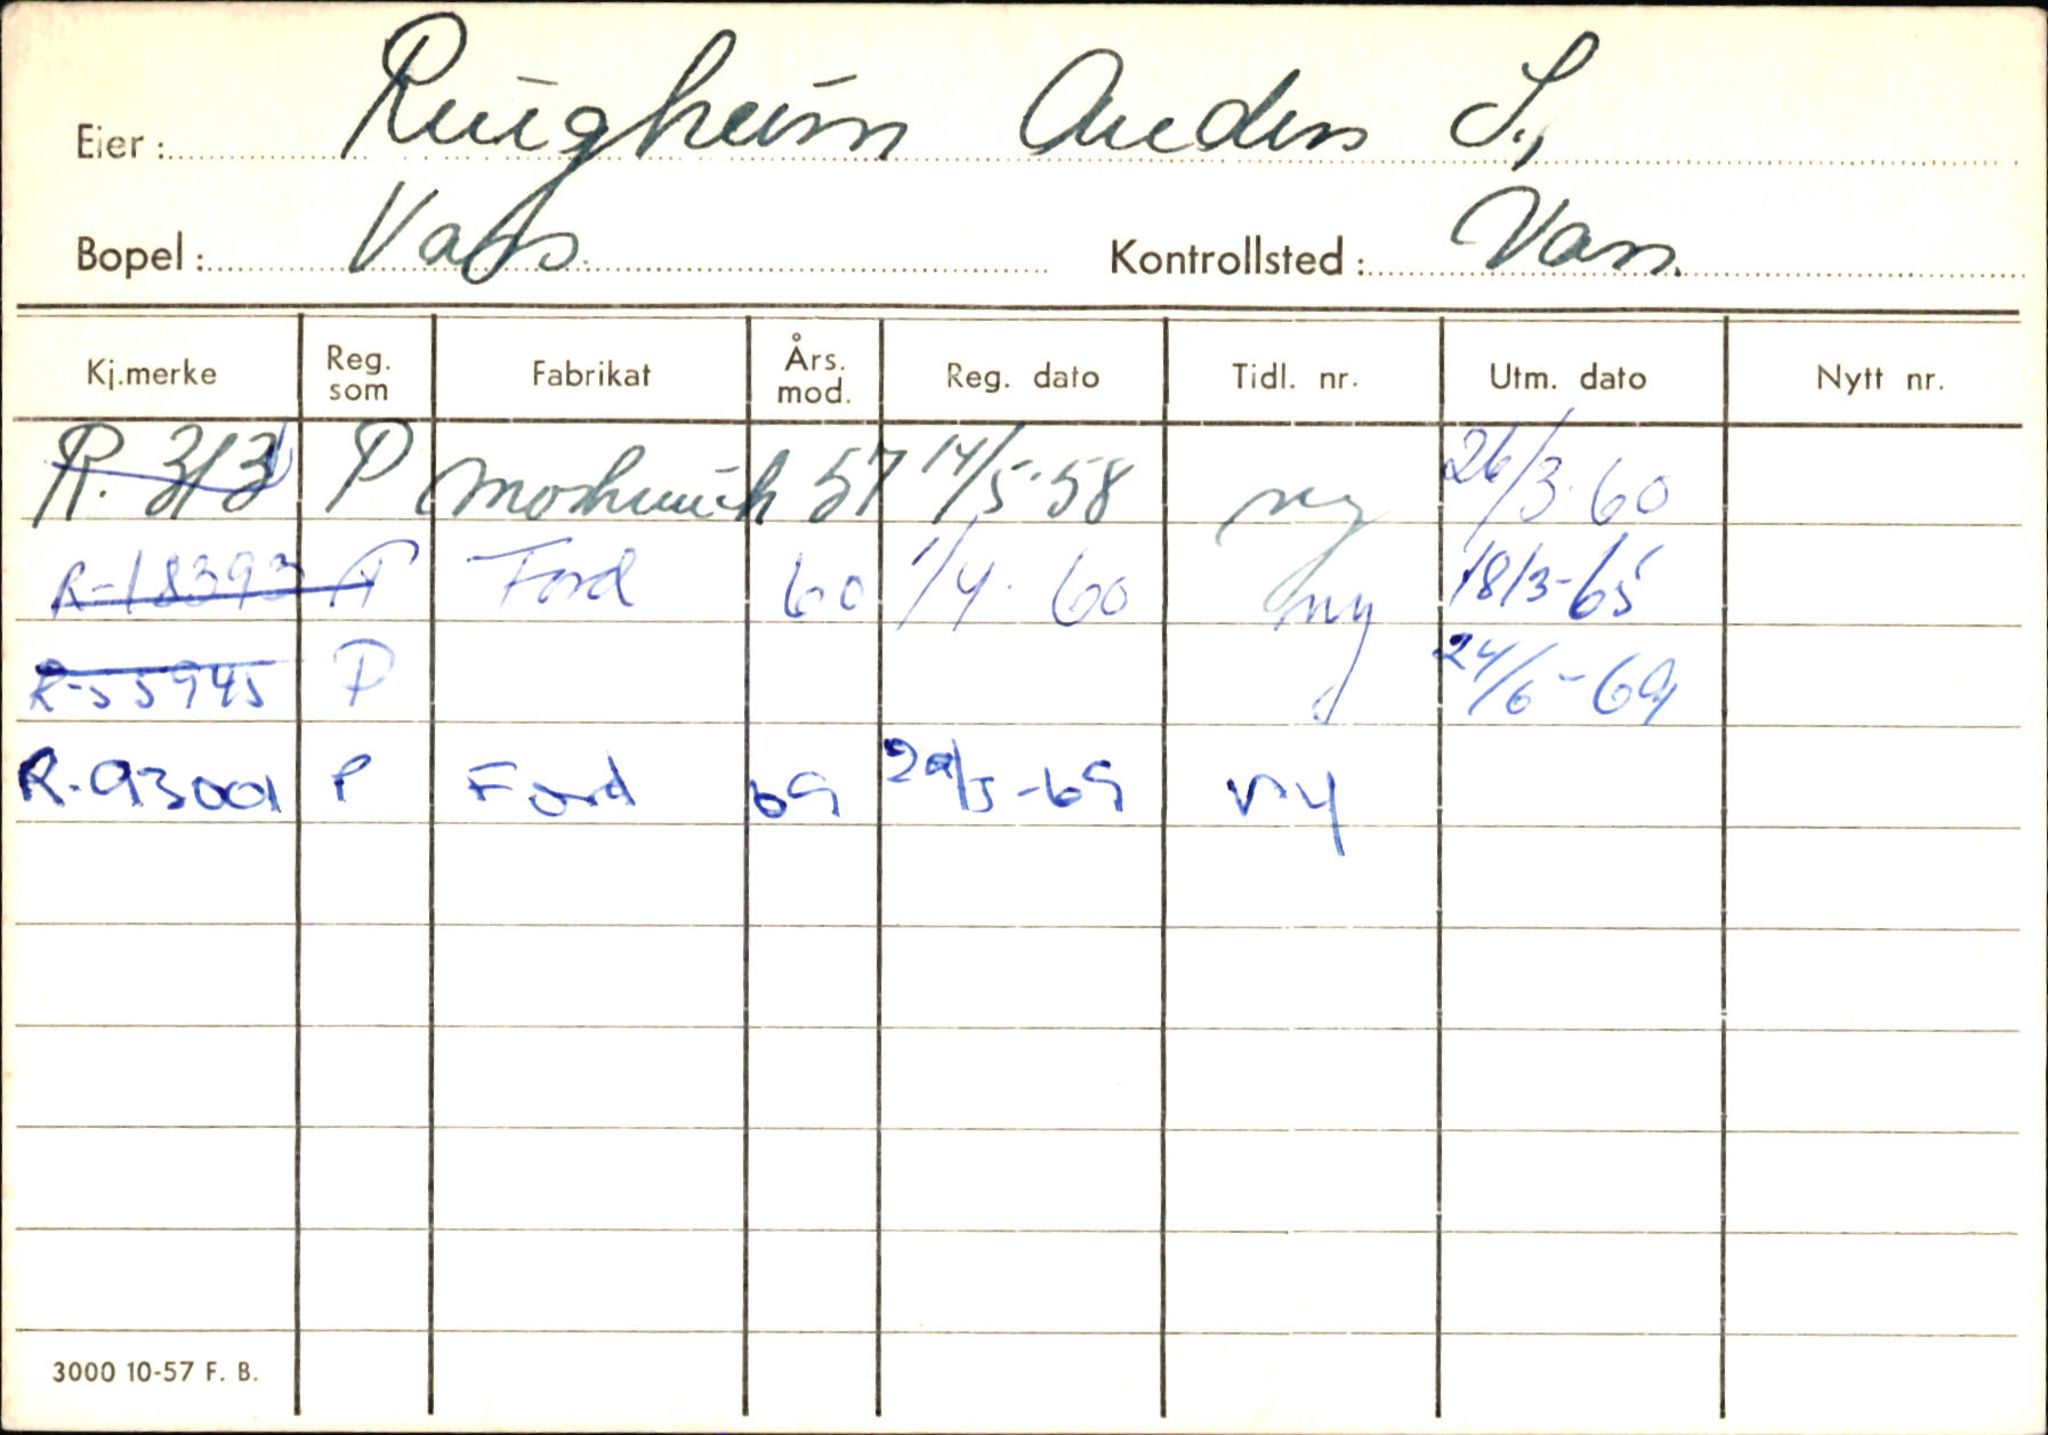 Eier: Ringheim Anders S.,
Bopel: Voss. Kontrollsted: Voss.
Kj.merke Reg. som Fabrikat Års. mod. Reg. dato Tidl. nr. Utm. dato Nytt nr.
R. 313 P Moskwich 57 14/5-58 ny 26/3-60
R-18393 P Ford 60 1/4-60 ny 18/3-65
R-55945 P 24/6-69
R-93001 P Ford 69 29/5-69 ny
3000 10-57 F. B.